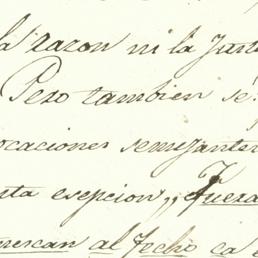 la razon ni la Just
Pero tambien se
ocaciones semejantes
sta esepcion,, Fuera
merescan al Fecho ca